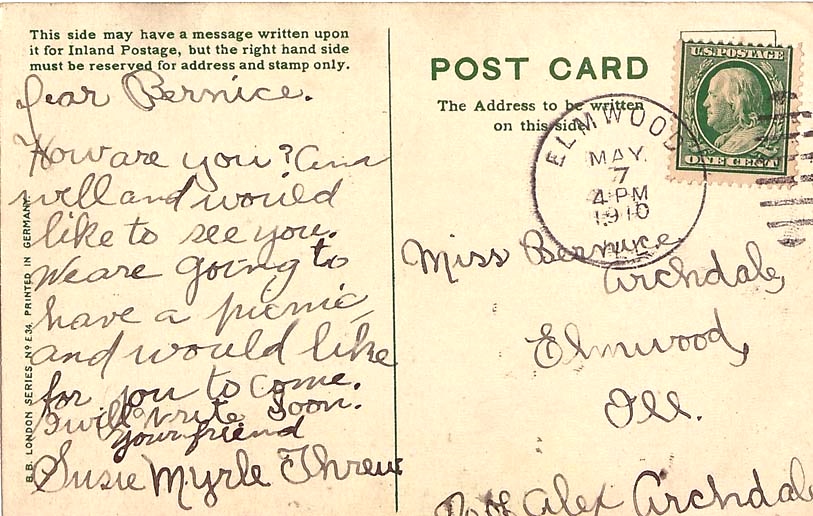 This side may have a message written upon
it for Inland Postage, but the right hand side
must be reserved for address and stamp only.
Dear Bernice.
How are you? Am
well and would
like to see you.
We are going to
have a picnic,
and would like
for you to come.
I will write soon.
Your friend
Susie Myrle
B.B. LONDON SERIES. No E34. PRINTED IN GERMANY.
POST CARD
The Address to be written
on this side
U.S. POSTAGE
ONE CENT
ELMWOOD
MAY.
7
4 PM
1910
ILL.
Miss Bernice
Archdale,
Elmwood,
Ill.
Alex Archdale